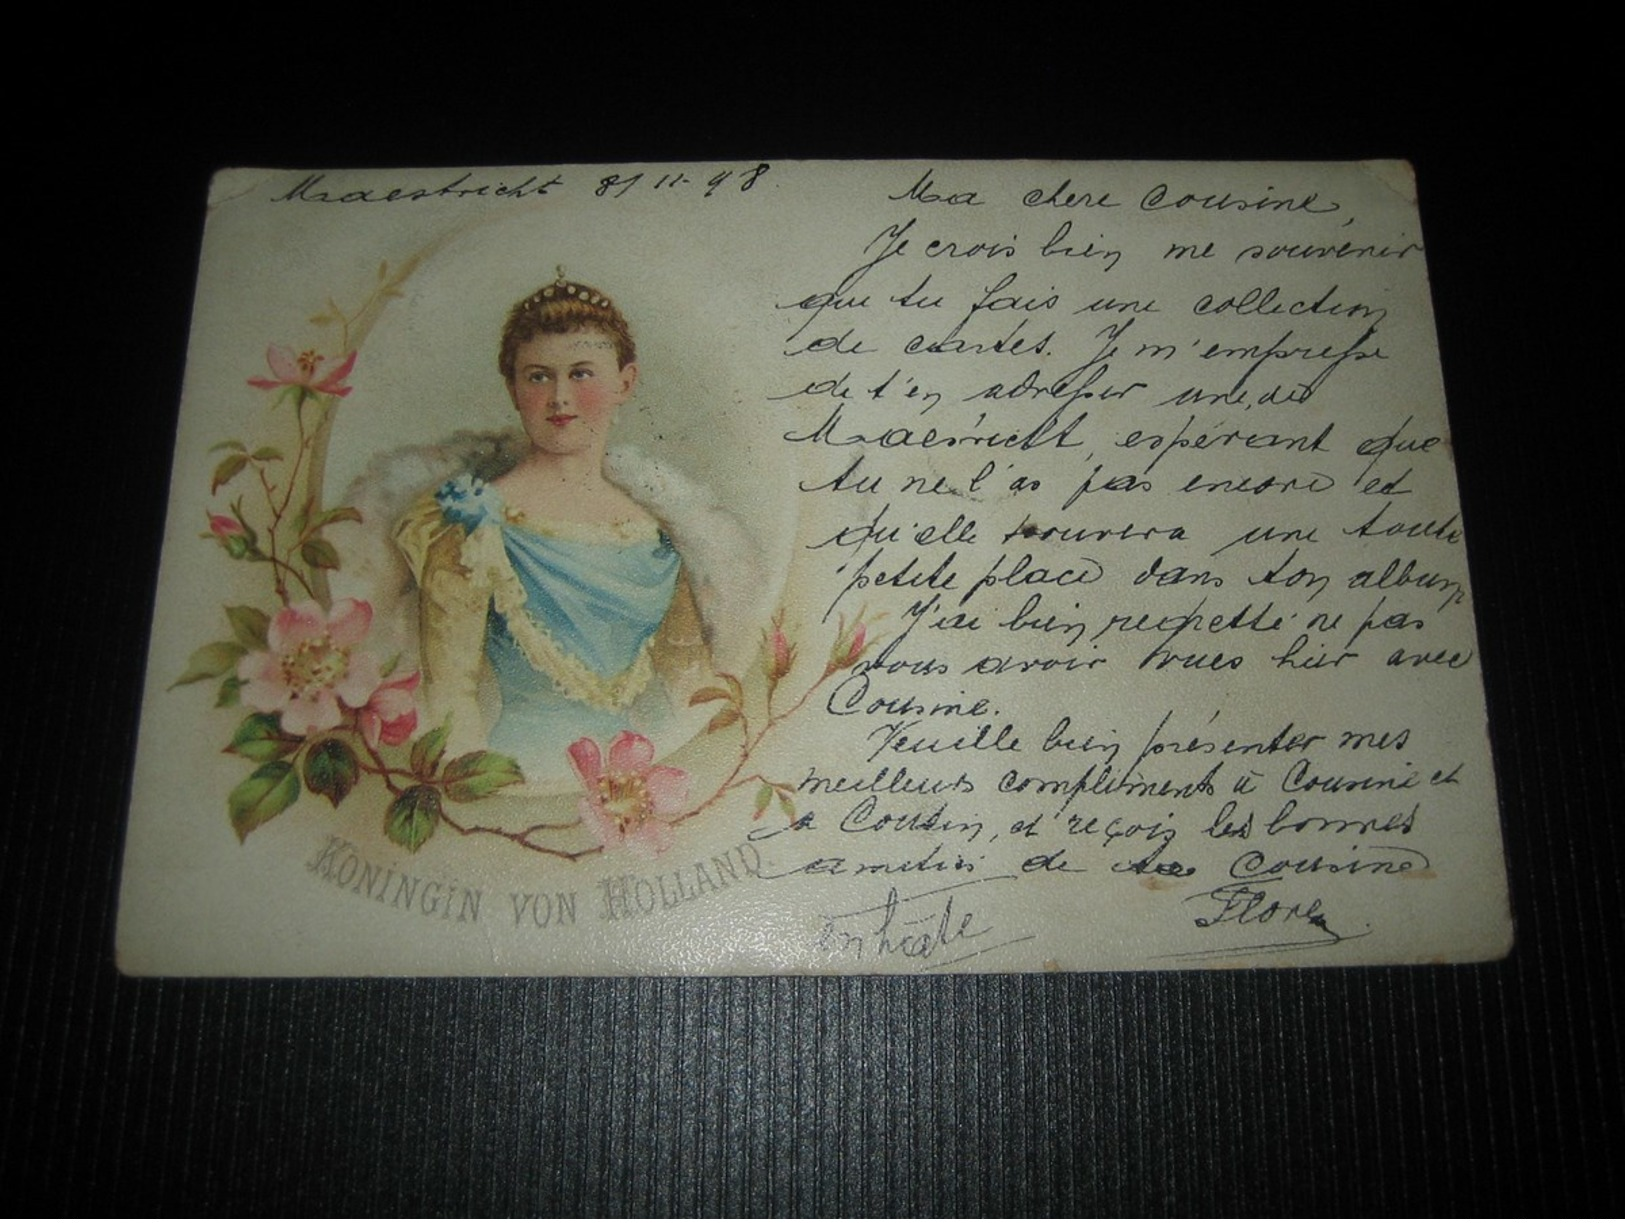 Maestricht 8/11-98.
Ma chere Cousine,
Je crois bien me souvenir
que tu fais une collection
de cartes. Je m'empresse
de t'en adresser une, de
Maestricht, espérant que
tu ne l'as pas encore et
qu'elle trouvera une toute
petite place dans ton album
J'ai bien regretté ne pas
vous avoir vues hier avec
Cousine.
Veuille bien présenter mes
meilleurs compliments à Cousine et
a Cousin, et reçois les bonnes
amitiés de ta Cousine
Flore.
en hâte
KONINGIN VON HOLLAND.